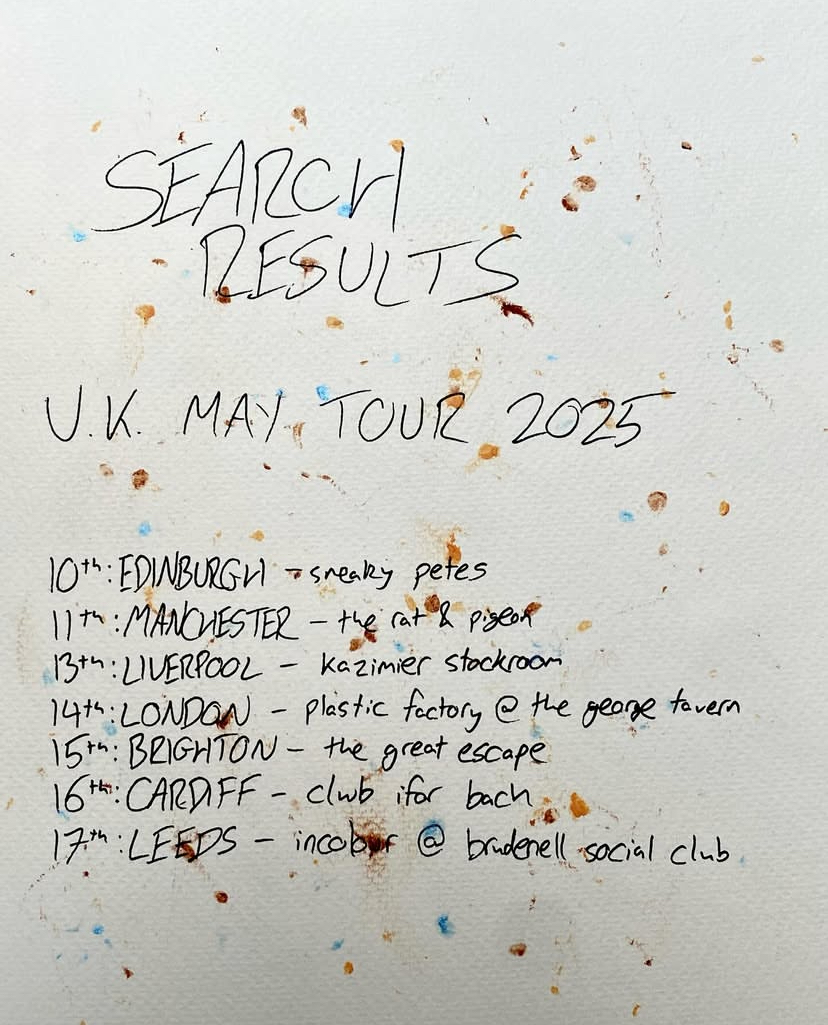 SEARCH
RESULTS
U.K. MAY TOUR 2025
10th: EDINBURGH - sneaky petes
11th: MANCHESTER - the rat & pigeon
13th: LIVERPOOL - kazimier stockroom
14th: LONDON - plastic factory @ the george tavern
15th: BRIGHTON - the great escape
16th: CARDIFF - clwb ifor bach
17th: LEEDS - incolour @ brudenell social club